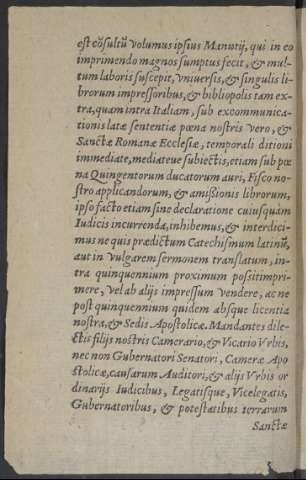 est cōsultũ volumus ipsius Manutij, qui in eo
imprimendo magnos sumptus fecit, & mul-
tum laboris suscepit, vniuersis, & singulis li-
brorum impressoribus, & bibliopolis tam ex-
tra, quam intra Italiam, sub excommunica-
tionis latæ sententiæ pœna nostris vero, &
Sanctæ Romanæ Ecclesiæ, temporali ditioni
immediate, mediateue subiectis, etiam sub pœ
na Quingentorum ducatorum auri, Fisco no-
stro applicandorum, & amissionis librorum,
ipso facto etiam sine declaratione cuiusquàm
Iudicis incurrenda, inhibemus, & interdici-
mus ne quis prædictum Catechismum latinũ,
aut in vulgarem sermonem translatum, in-
tra quinquennium proximum possit impri-
mere, vel ab alijs impressum vendere, ac ne
post quinquennium quidem absque licentia
nostra, & Sedis Apostolicæ. Mandantes dile-
ctis filijs nostris Camerario, & Vicario Vrbis,
nec non Gubernatori Senatori, Cameræ Apo
stolicæ, causarum Auditori, & alijs Vrbis or
dinarijs Iudicibus, Legatisque, Vicelegatis,
Gubernatoribus, & potestatibus terrarum
Sanctæ